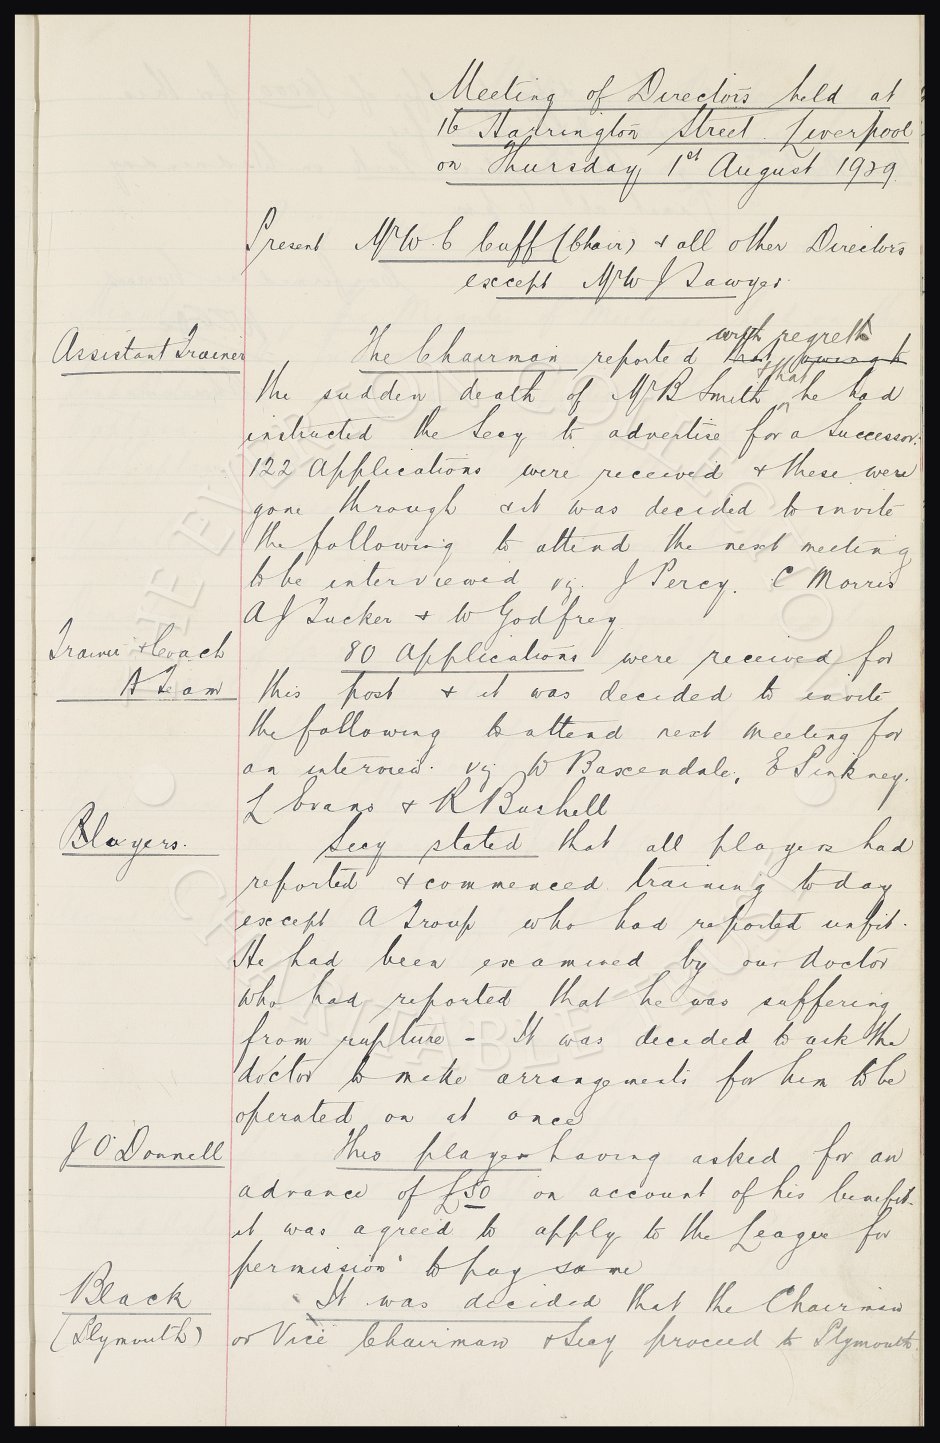 Meeting of Directors held at
16 Harrington Street. Liverpool
on Thursday 1st August 1929
Present Mr W. C Cuff (Chair) & all other Directors
except Mr W J Sawyer.
Assistant Trainer
with regret
The Chairman reported that owing to
the sudden death of Mr B Smith & that he had
instructed the Secy to advertise for a Successor.
122 Applications were received & these were
gone through & it was decided to invite
the following to attend the next meeting
to be interviewed viz. J Percy. C Morris
A J Tucker & W Godfrey
Trainer & Coach
A Team
80 Applications were received for
this post & it was decided to invite
the following to attend next meeting for
an interview. viz W Baxendale, E Pinkney.
L Evans & R Bushell
Players.
Secy stated that all players had
reported & commenced training today
except A Troup who had reported unfit.
He had been examined by our doctor
who had reported that he was suffering
from rupture - It was decided to ask the
doctor to make arrangements for him to be
operated on at once
J O'Donnell
This player having asked for an
advance of £50 on account of his benefit.
it was agreed to apply to the League for
permission to pay same
Black
(Plymouth)
It was decided that the Chairman
or Vice Chairman & Secy proceed to Plymouth.